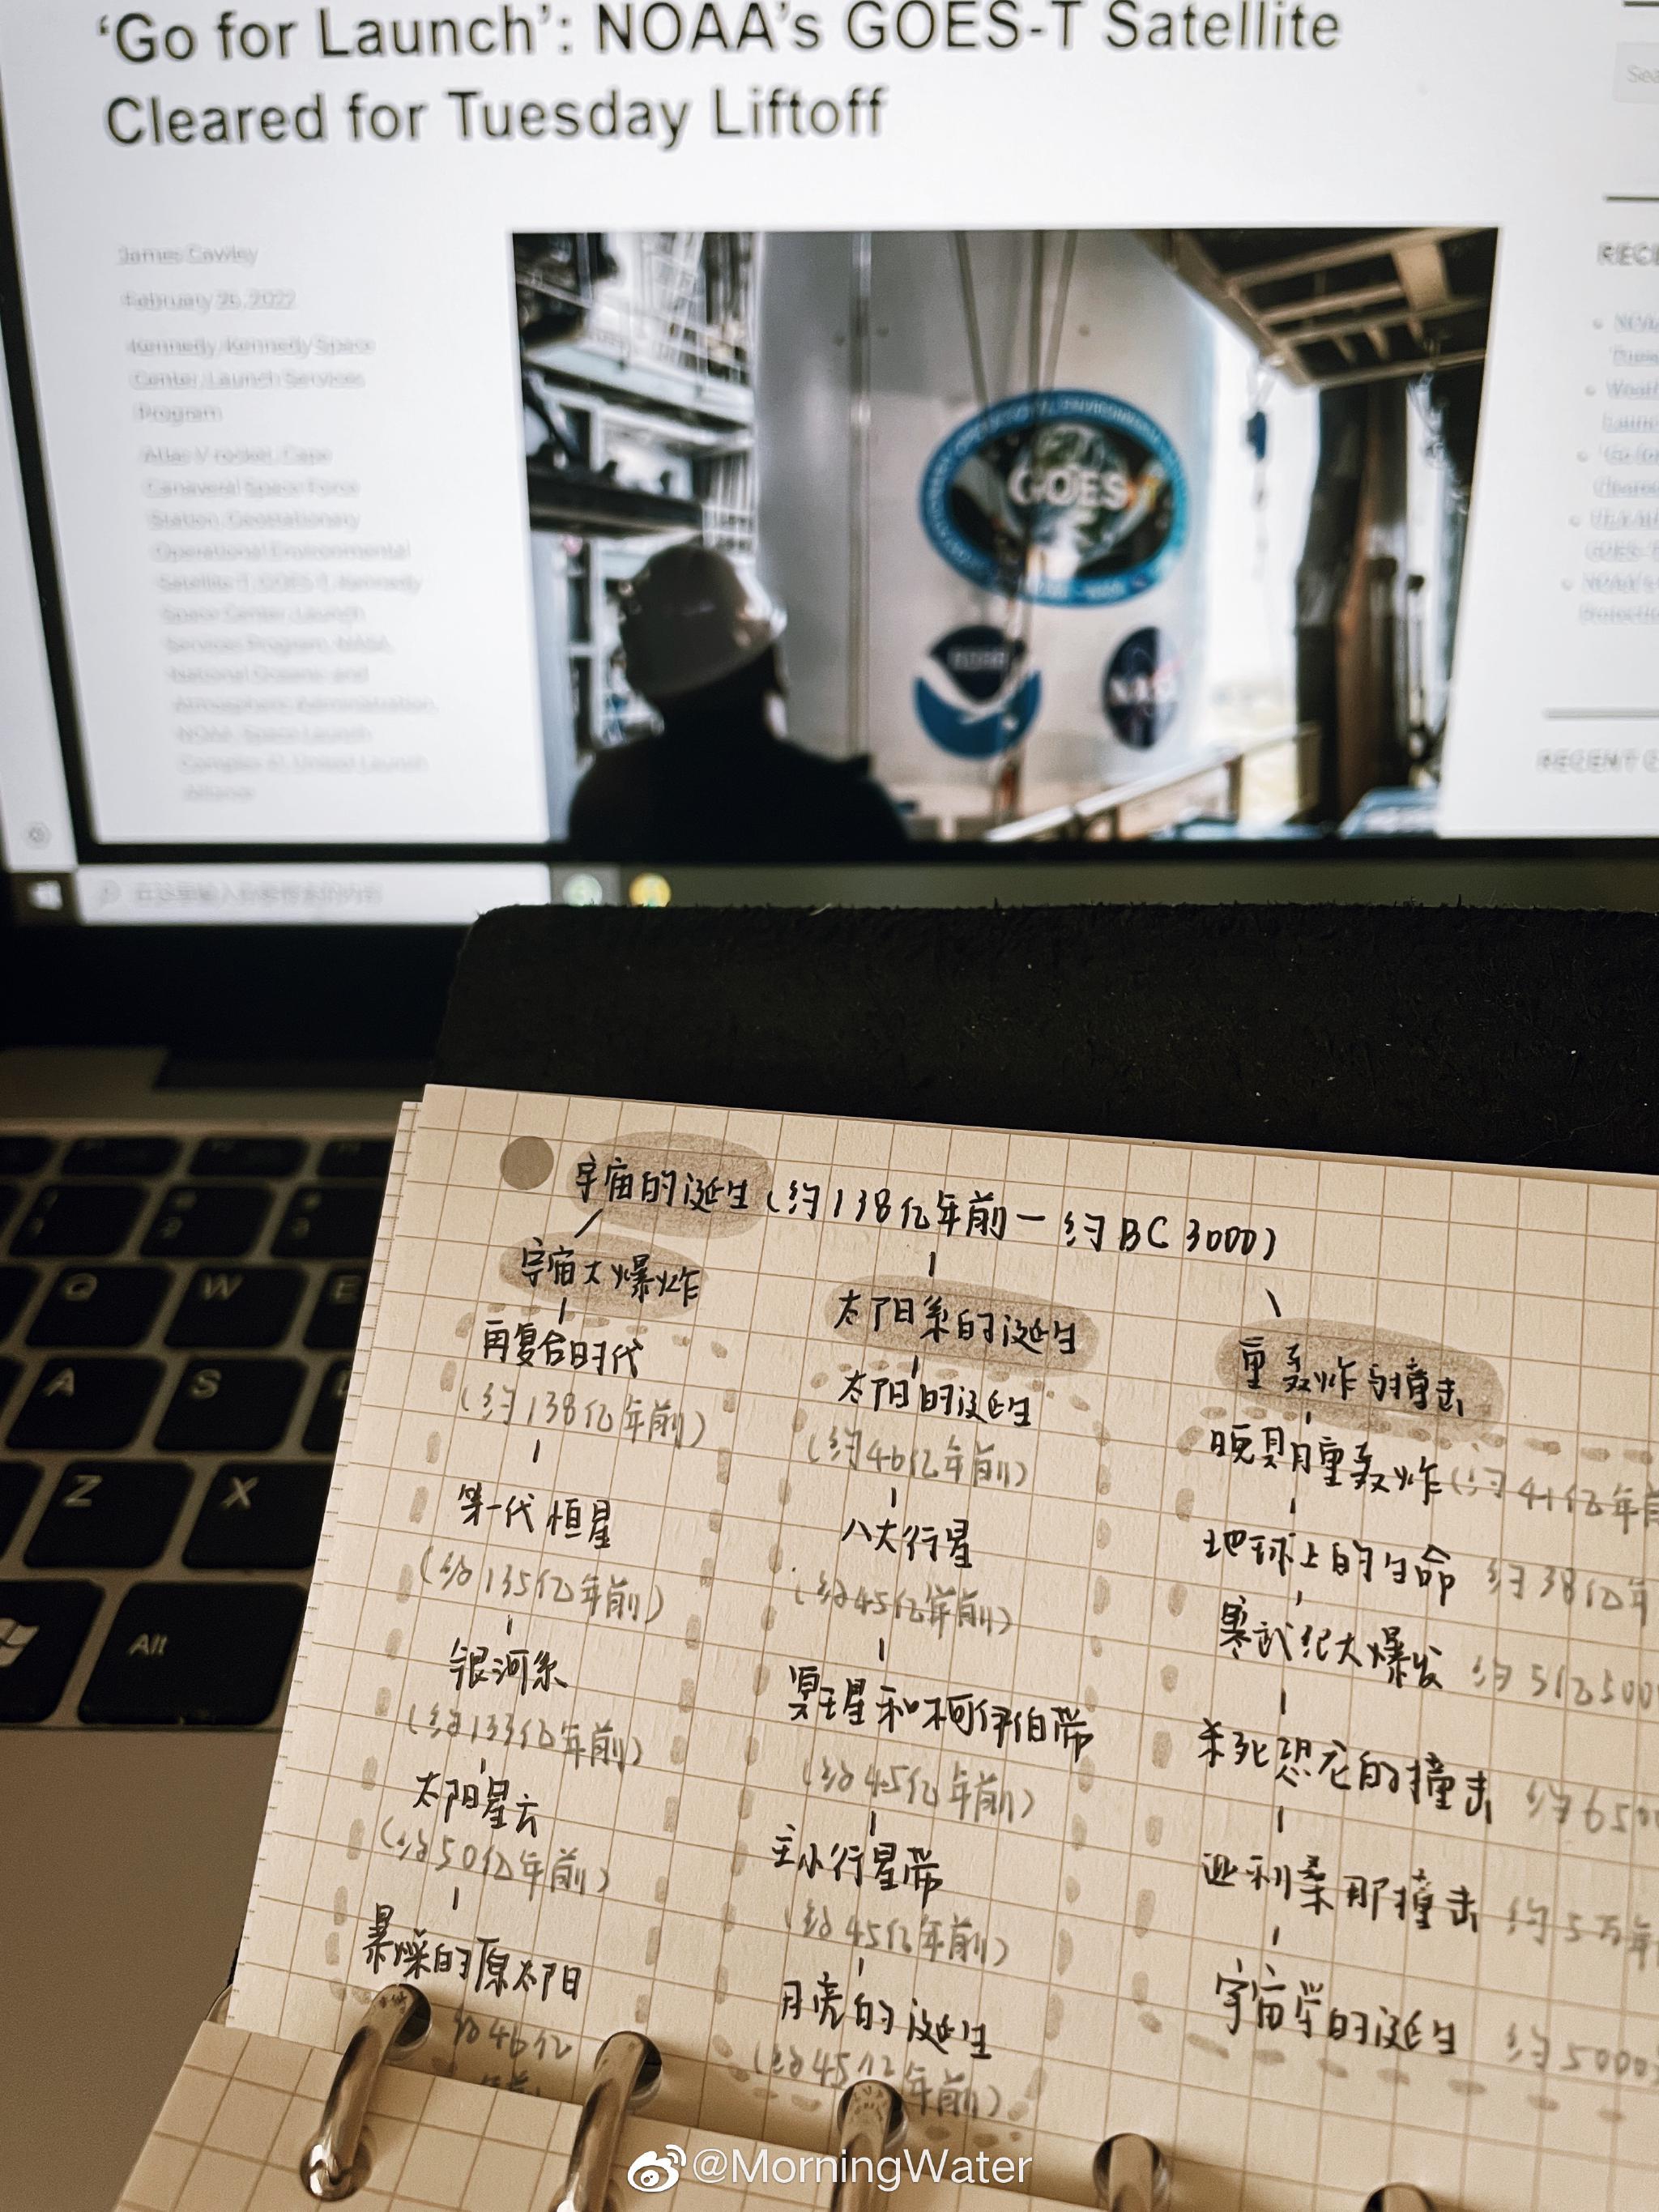 ‘Go for Launch’: NOAA’s GOES-T Satellite
Cleared for Tuesday Liftoff
James Cawley
February 26, 2022
Kennedy, Kennedy Space
Center, Launch Services
Program
Atlas V rocket, Cape
Canaveral Space Force
Station, Geostationary
Operational Environmental
Satellite T, GOES-T, Kennedy
Space Center, Launch
Services Program, NASA,
National Oceanic and
Atmospheric Administration,
NOAA, Space Launch
Complex 41, United Launch
Alliance
Sea
RECE
RECENT C
GOES
NOAA
Q
W
E
A
S
Z
X
Alt
宇宙的诞生(约138亿年前-约BC 3000)
宇宙大爆炸
再复合时代
(约138亿年前)
第一代恒星
(约135亿年前)
银河系
(约133亿年前)
太阳星云
(约50亿年前)
暴燥的原太阳
约46亿
年前
太阳系的诞生
太阳的诞生
(约46亿年前)
八大行星
(约45亿年前)
冥王星和柯伊伯带
(约45亿年前)
主小行星带
(约45亿年前)
月亮的诞生
(约45亿年前)
重轰炸与撞击
晚期重轰炸(约41亿年前
地球上的生命 约38亿年
寒武纪大爆发 约5亿500
杀死恐龙的撞击 约650
亚利桑那撞击 约5万年
宇宙学的诞生 约5000
@MorningWater